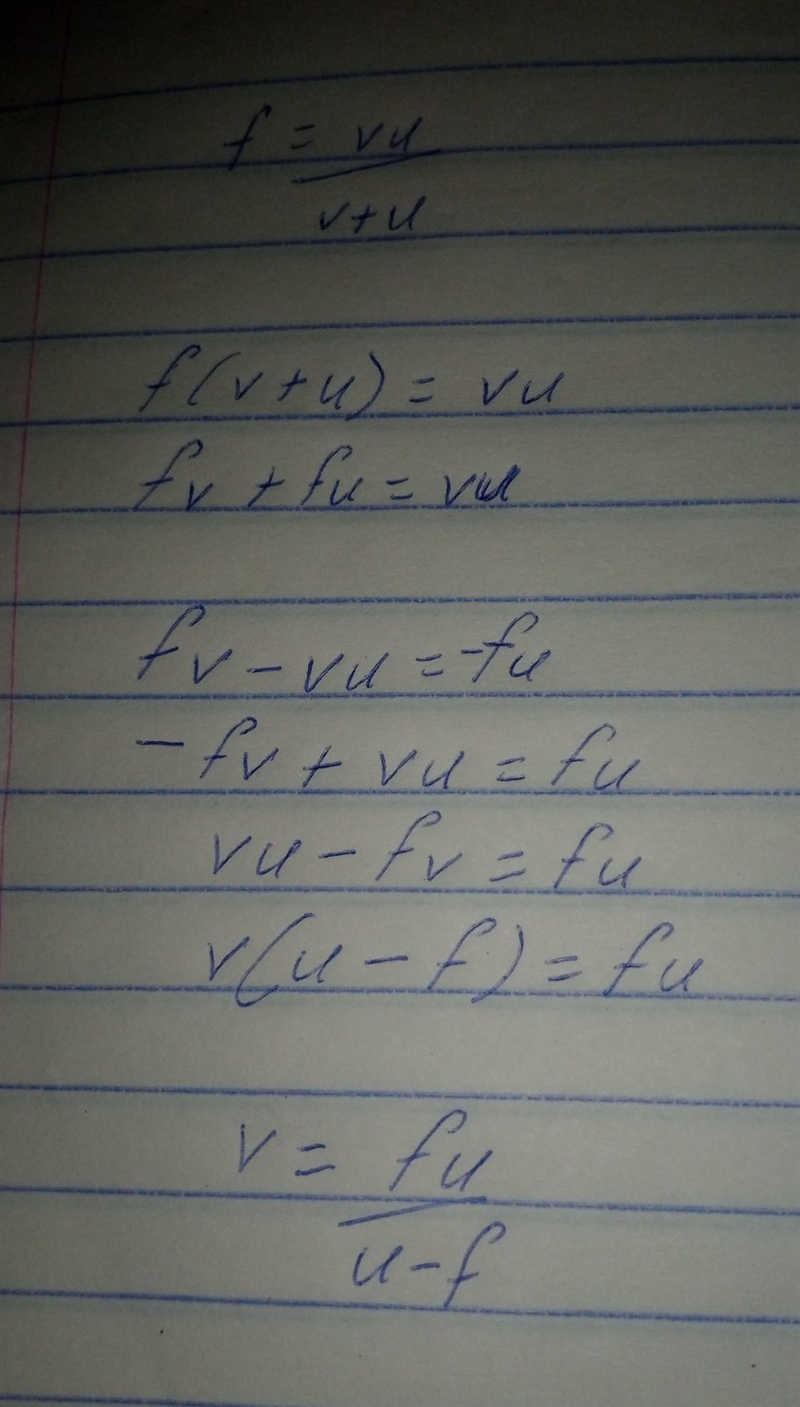 f = vu
v+u
f(v+u) = vu
fv + fu = vu
fv - vu = -fu
- fv + vu = fu
vu - fv = fu
v(u - f) = fu
v = fu
u - f